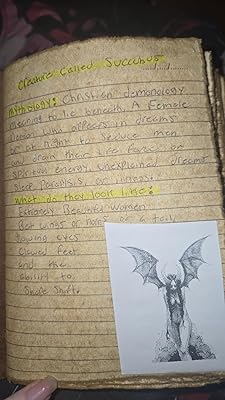 Creature Called Succubus
Mythology: Christian demonology
meaning to lie beneath. A Female
Demon who appears in dreams
or at night to seduce men
and drain their life force or
energy, unexplained dreams
Sleep Paralysis, or illness.
What do they look like:
Extremely Beautiful Women
wings or horns or a tail,
glowing eyes or
clawed feet
and the
ability to
Shape Shift.